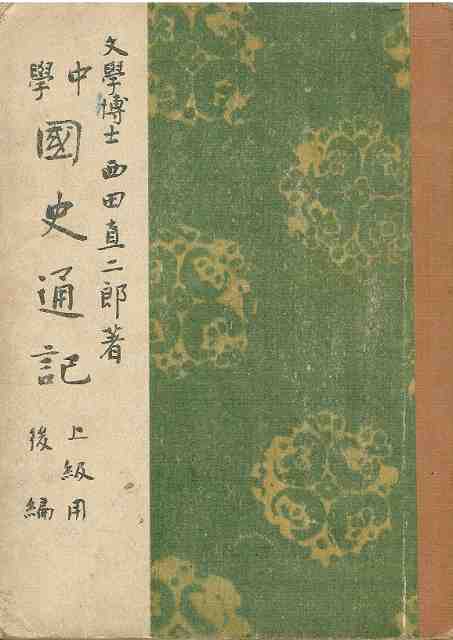 文學博士 西田直二郎著
中學 國史通記 上級用 後編